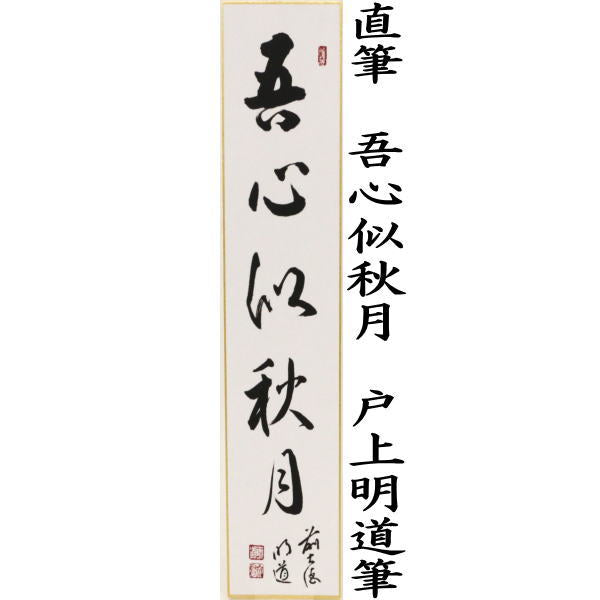 直筆 吾心似秋月 戸上明道筆
吾心似秋月
前大徳
明道